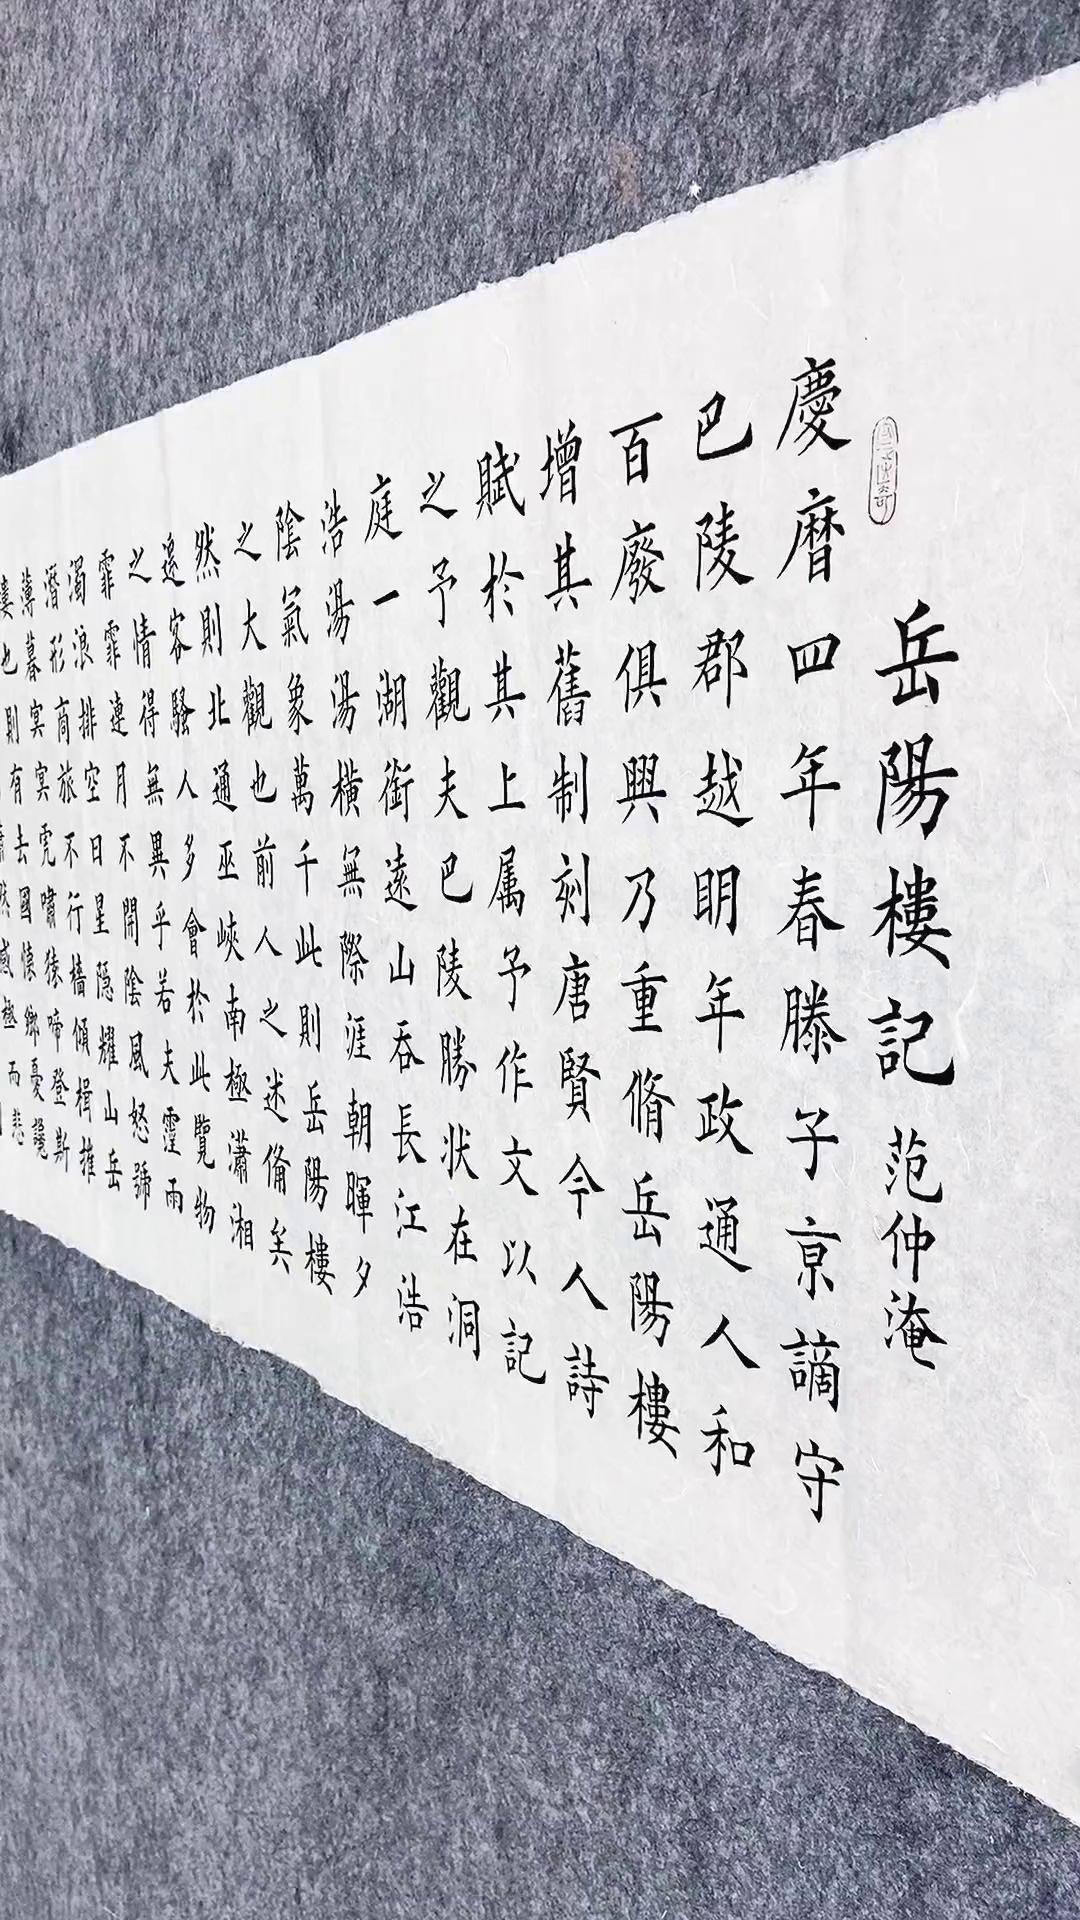 岳陽樓記 范仲淹
慶曆四年春滕子京謫守
巴陵郡越明年政通人和
百廢俱興乃重脩岳陽樓
增其舊制刻唐賢今人詩
賦於其上属予作文以記
之予觀夫巴陵勝狀在洞
庭一湖銜遠山吞長江浩
浩湯湯橫無際涯朝暉夕
陰氣象萬千此則岳陽樓
之大觀也前人之述俻矣
然則北通巫峽南極瀟湘
遷客騷人多會於此覽物
之情得無異乎若夫霪雨
霏霏連月不開陰風怒號
濁浪排空日星隠耀山岳
潛形商旅不行檣傾楫摧
薄暮冥冥虎嘯猿啼登斯
樓也則有去國懷鄉憂讒